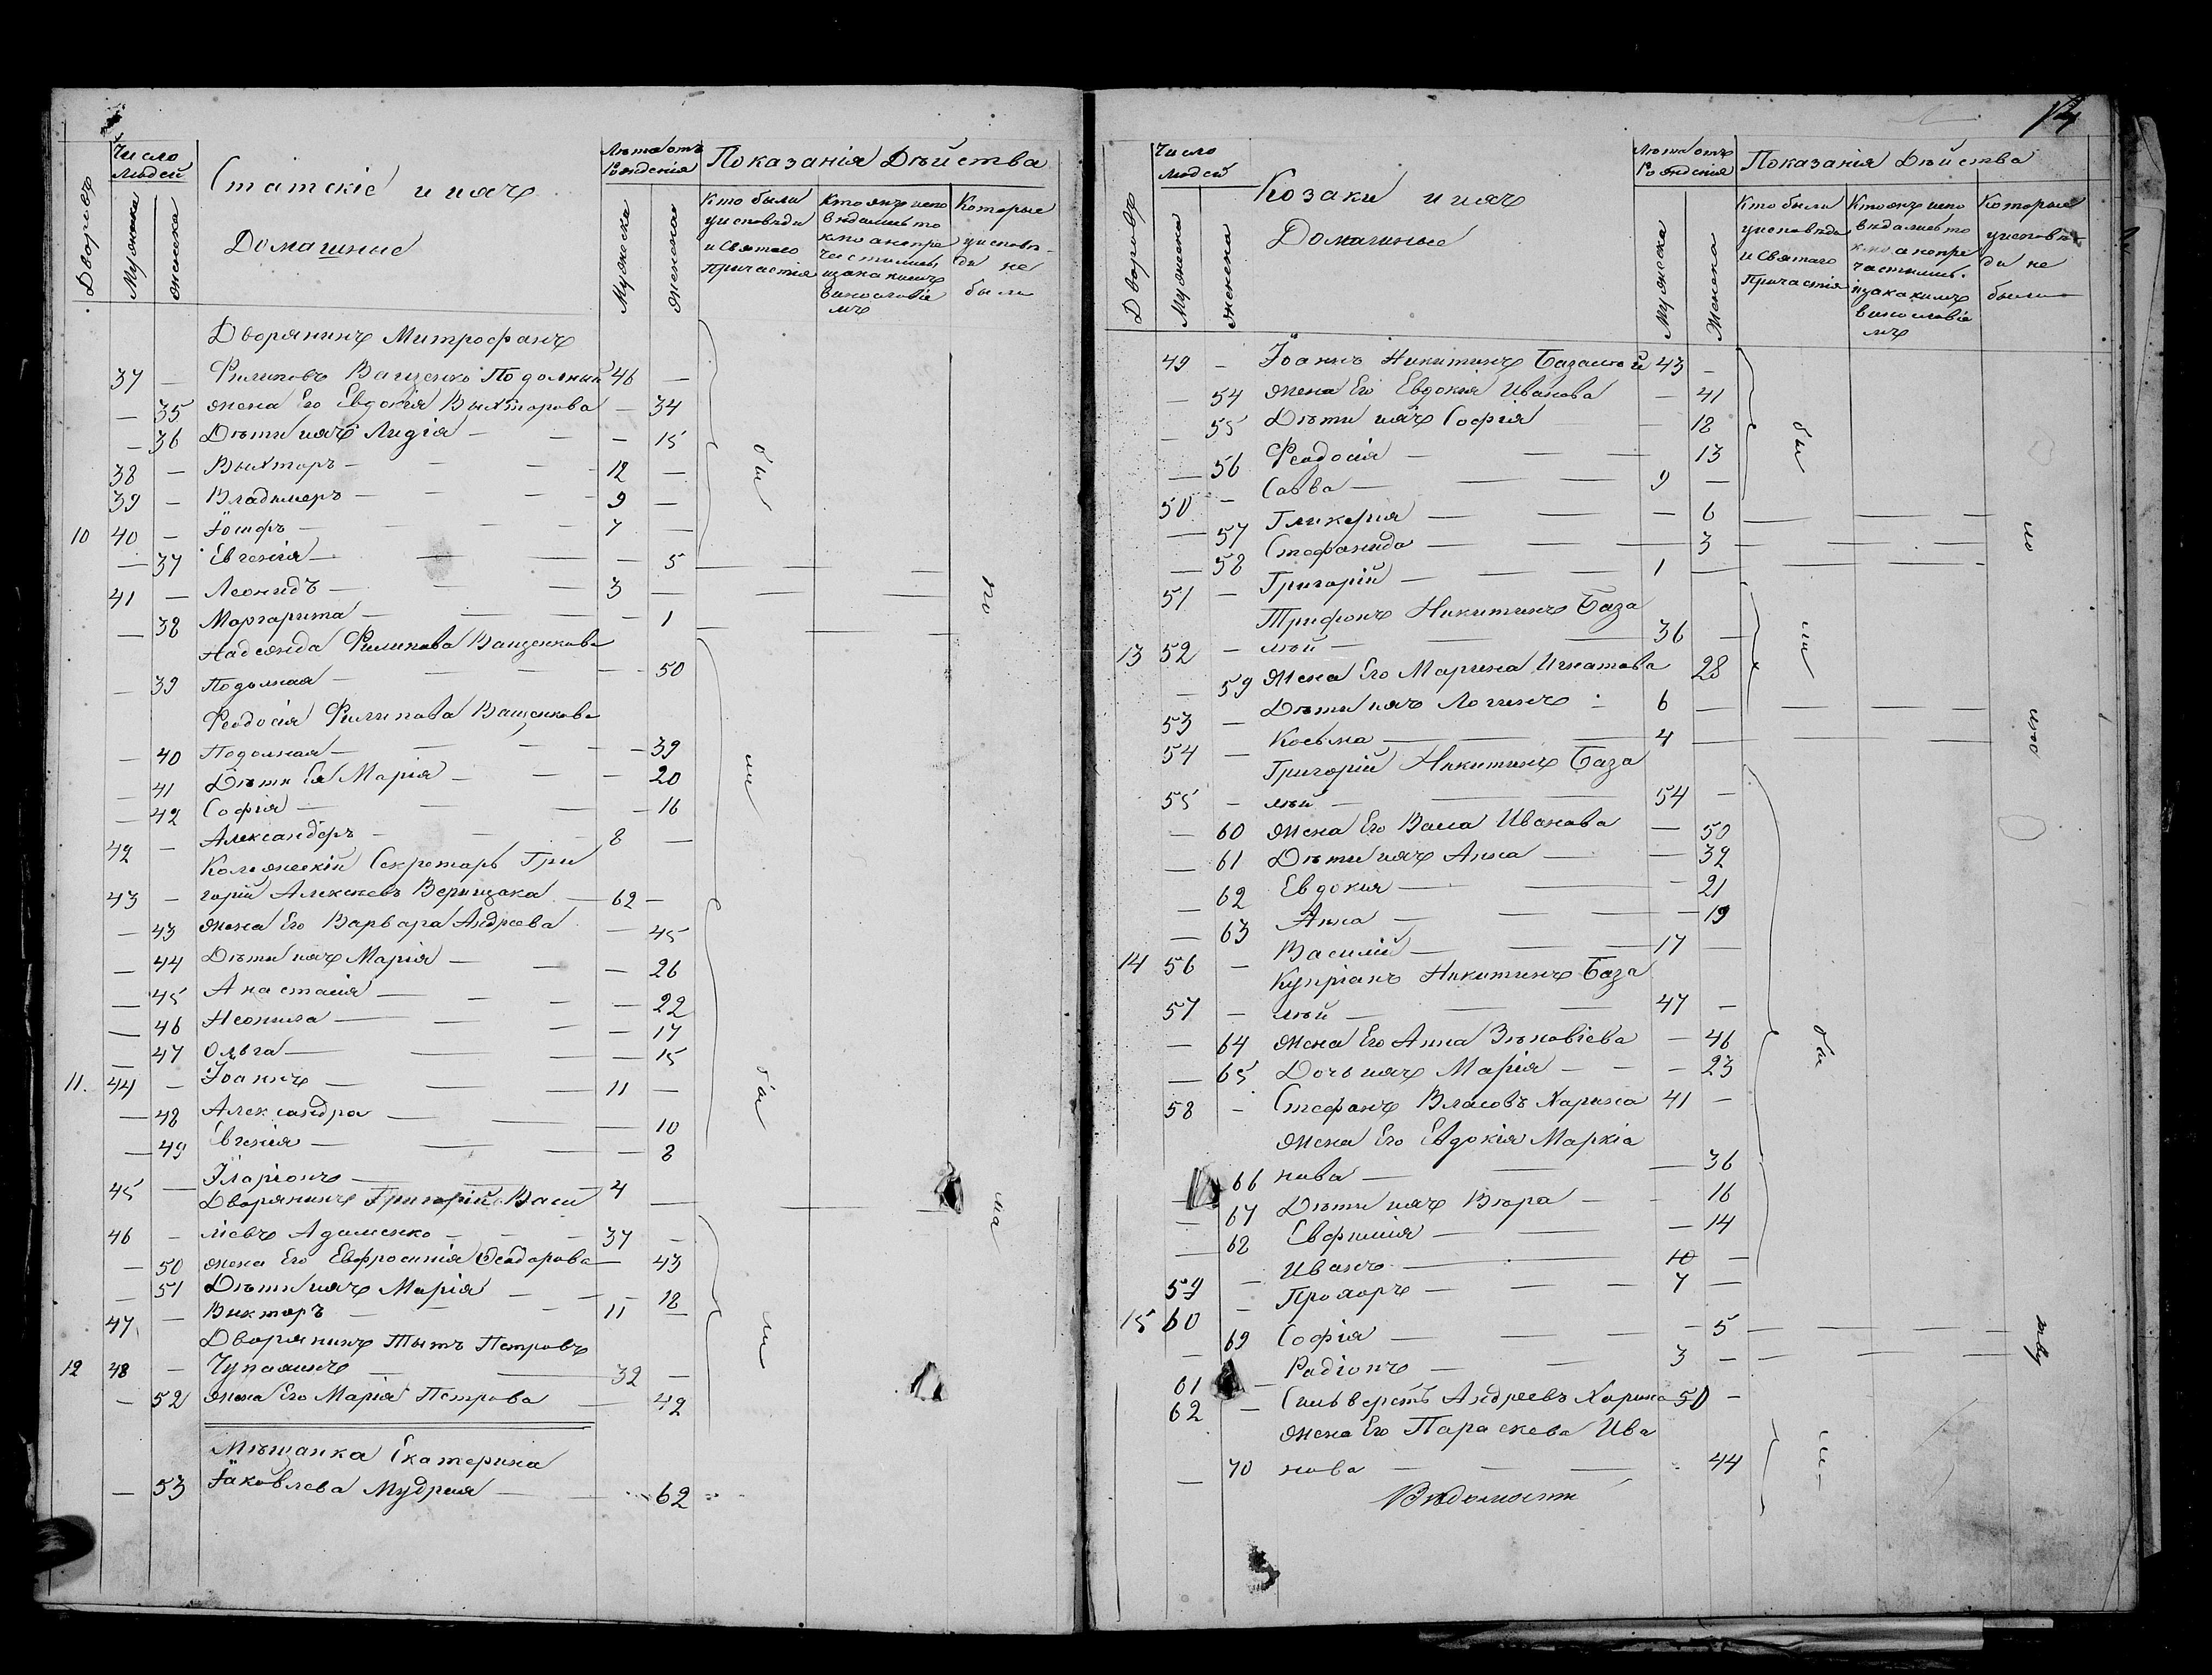 Число
Людей
Статскіе и ихъ
Домашные
Лѣта отъ
Рождения
Показанія Дѣйства
Дворовъ
Мужеска
Женска
Мужеска
Женска
Кто были
у исповѣди
и Святаго
Причастія
Кто же испо
вѣдались то
кмо а непре
частились
и за какимъ
винословіе
мъ
Которые
у исповѣ-
ди не
были
Дворянинъ Митрофанъ
37 — Филиповъ Ващенко Подолный 46 —
— 35 жена Его Евдокія Вихторова — 34
— 36 Дѣти ихъ Лидія — — — 15
38 — Вихторъ — — — 12 —
39 — Владимеръ — — — 9 —
10 40 — Іосифъ — — — 7 —
— 37 Евгенія — — — — 5
41 — Леонидъ — — — 3 —
— 38 Маргарита — — — — 1
Надежда Филипова Ващенкова
— 39 Подолная — — — — 50
Феодосія Филипова Ващенкова
— 40 Подолная — — — — 39
— 41 Дѣти Ея Марія — — — 20
— 42 Софія — — — — 16
42 — Александеръ — — — 8 —
Коллежскій Секретарь Гри
43 — горій Алексѣевъ Верищака — 62 —
— 43 жена Его Варвара Андреева — 45
— 44 Дѣти ихъ Марія — — — 26
— 45 Анастасія — — — — 22
— 46 Неонила — — — — 17
— 47 Ольга — — — — 15
11. 44 — Іоаннъ — — — 11 —
— 48 Александра — — — 10
— 49 Евгенія — — — — 8
45 — Іларіонъ — 4 —
Дворянинъ Григорій Васи
46 — ліевъ Адаменко — — — 37 —
— 50 жена Его Евфросинія Феодорова — 43
— 51 Дѣти ихъ Марія — — — 18
47 — Викторъ — — — 11 —
Дворянинъ Тытъ Петровъ
12 48 — Чупахинъ — — 32 —
— 52 жена Его Марія Петрова — 42
Мѣщанка Екатерина
— 53 Іаковлева Мудрая — — 62
бы
ли
бы
ли
14
Число
Людей
Козаки и ихъ
Домашные
Лѣта отъ
Рождения
Показанія Дѣйства
Дворовъ
Мужеска
Женска
Мужеска
Женска
Кто были
у исповѣди
и Святаго
Причастія
Кто же испо
вѣдались то
кмо а непре
частились
и за какимъ
винословіе
мъ
Которые
у исповѣ
ди не
были
49 — Іоаннъ Никитинъ Базалій 43 —
— 54 жена Его Евдокія Иванова — 41
— 55 Дѣти ихъ Софія — 18
— 56 Феодосія — — — 13
50 — Савва — — — 9 —
— 57 Гликерія — — — 6
— 58 Стефанида — — — 3
51 — Григорій — — — 1 —
Трифонъ Никитинъ База
13 52 — лый — — 36 —
— 59 Жена Его Марина Игнатова 28
53 — Дѣти ихъ Логинъ 6 —
54 — Косьма — — 4 —
Григорій Никитинъ База
55 — лый — — 54 —
— 60 Жена Его Васса Иванова — 50
— 61 Дѣти ихъ Анна — — 32
— 62 Евдокія — — — 21
— 63 Анна — — — 19
14 56 — Василій — — — 17 —
Купріанъ Никитинъ База
57 — лый — — 47 —
— 64 Жена Его Анна Зѣновіева — 46
— 65 Дочь ихъ Марія — — — 23
58 — Стефанъ Власовъ Харина 41 —
Жена Его Евдокія Маркіа
66 нова — — — 36
— 67 Дѣти ихъ Вѣра — — 16
— 68 Евфимія — — 14
59 — Иванъ — 10 —
15 60 — Прохоръ — — — 7 —
— 69 Софія — — — 5
61 — Радіонъ — — 3 —
62 — Сильверстъ Андреевъ Харина 50 —
Жена Его Параскева Ива
— 70 нова — — — 44
Вѣдомости
бы
ли
бы
ли